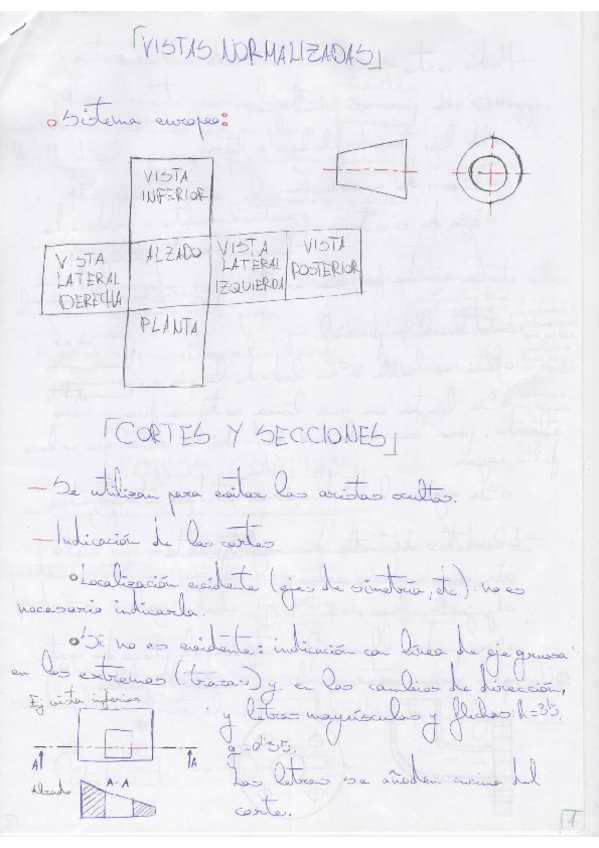 VISTAS NORMALIZADAS
Sistema europeo:
VISTA
INFERIOR
VISTA
LATERAL
DERECHA
ALZADO
VISTA
LATERAL
IZQUIERDA
VISTA
POSTERIOR
PLANTA
CORTES Y SECCIONES
— Se utilizan para evitar las aristas ocultas.
— Indicación de los cortes
Localización evidente (ejes de simetría, etc): no es
necesario indicarla.
Si no es evidente: indicación con línea de eje gruesa
en los extremos (trazas) y en los cambios de dirección,
y letras mayúsculas y flechas: h=3'5,
g=0'35.
Las letras se añaden encima del
corte.
Ej vista inferior
A A
Alzado
A-A
1